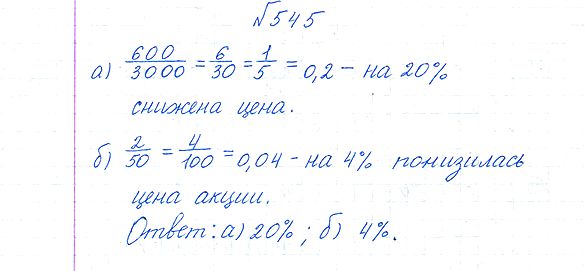 №545
а) 600/3000 = 6/30 = 1/5 = 0,2 – на 20%
снижена цена.
б) 2/50 = 4/100 = 0,04 – на 4% понизилась
цена акции.
Ответ: а) 20%; б) 4%.